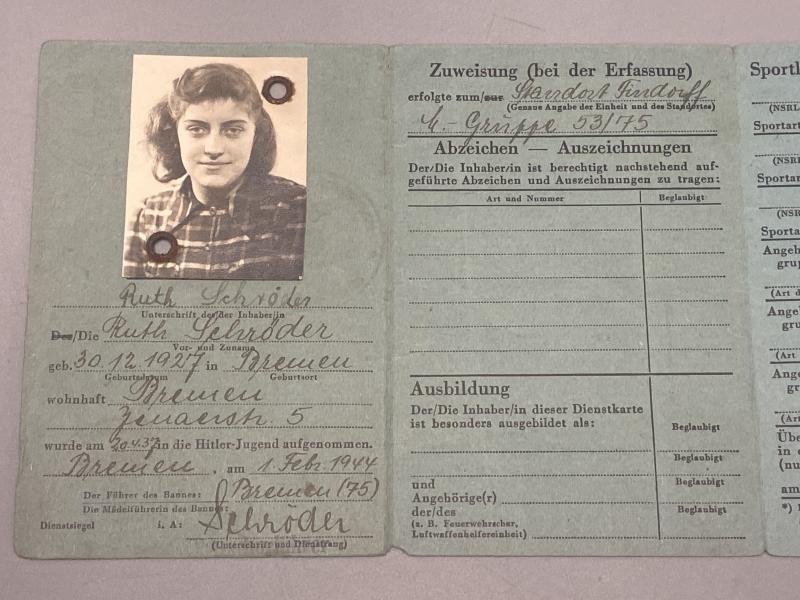 Ruth Schröder
Unterschrift des/der Inhaber/in
Der/Die Ruth Schröder
Vor- und Zuname
geb. 30.12.1927 in Bremen
Geburtsdatum Geburtsort
wohnhaft Bremen
Jenaerstr. 5
wurde am 20.4.37 in die Hitler-Jugend aufgenommen.
Bremen, am 1. Febr. 1944
Der Führer des Bannes: Bremen (75)
Die Mädelführerin des Bannes:
Dienstsiegel i. A: Schröder
(Unterschrift und Dienstrang)
Zuweisung (bei der Erfassung)
erfolgte zum/zur Standort Findorff
(Genaue Angabe der Einheit und des Standortes)
M.-Gruppe 53/75
Abzeichen — Auszeichnungen
Der/Die Inhaber/in ist berechtigt nachstehend auf-
geführte Abzeichen und Auszeichnungen zu tragen:
Art und Nummer Beglaubigt
Ausbildung
Der/Die Inhaber/in dieser Dienstkarte
ist besonders ausgebildet als:
Beglaubigt
Beglaubigt
und
Angehörige(r)
der/des
Beglaubigt
(z. B. Feuerwehrschar,
Luftwaffenhelfereinheit)
Sportl
(NSRL
Sportart
(NSR
Sportar
(NSR
Sportar
Angeh
grup
(Art d
Ange
gru
(Art
Ange
gru
(Art
Üb
in
(nu
am
*)